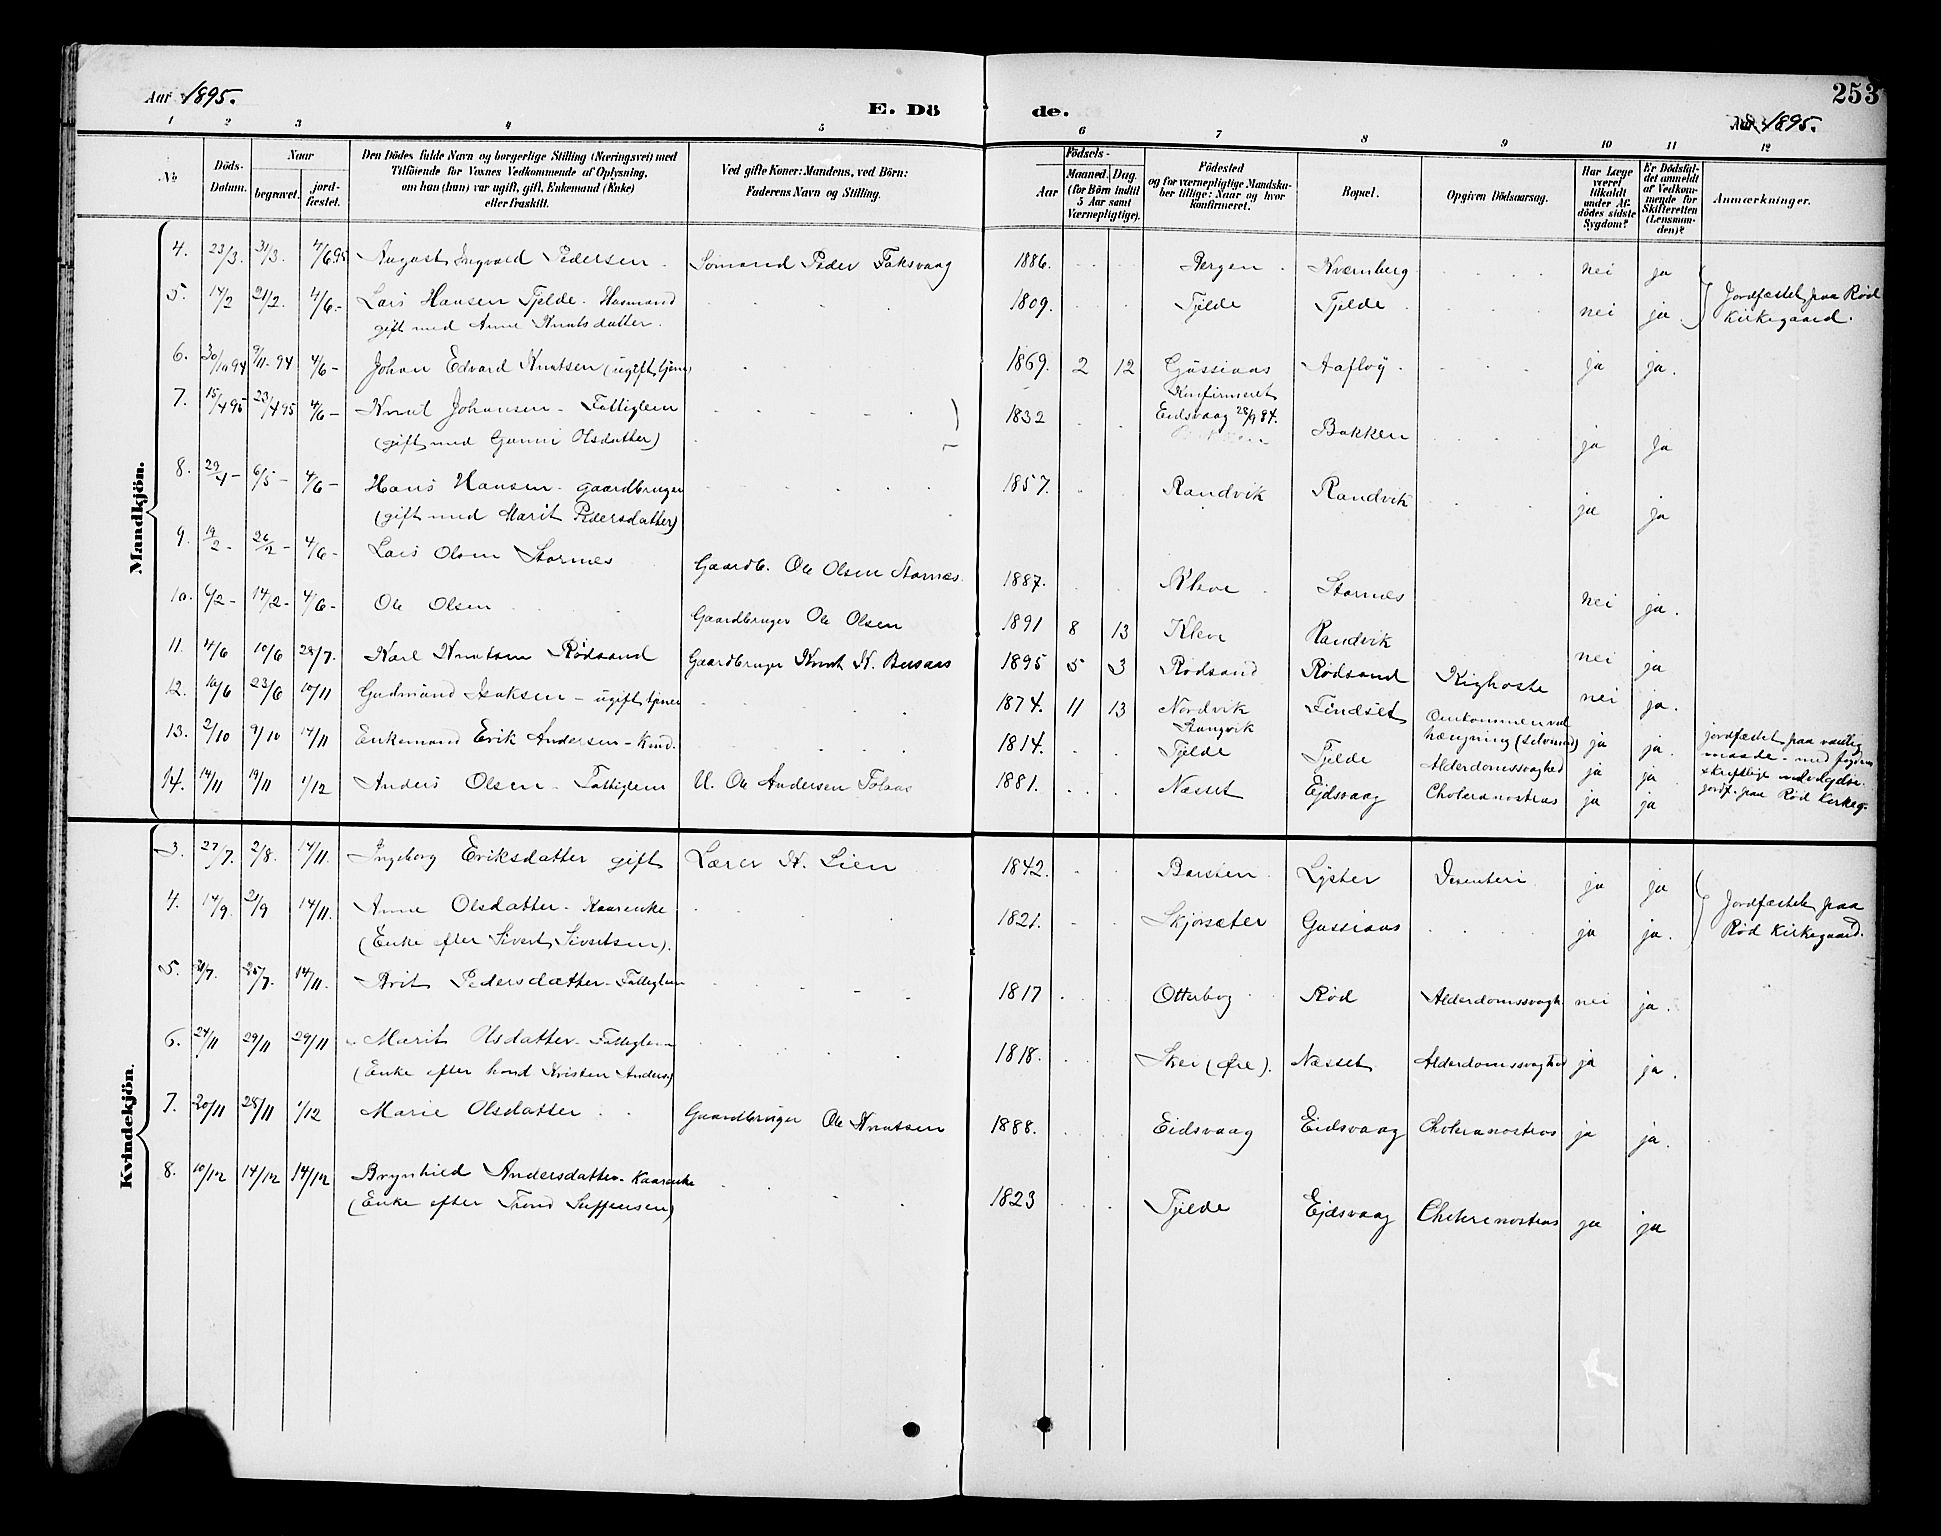 Aar 1895.
E. Döde.
253
Aar 1895.
1 2 3 4 5 6 7 8 9 10 11 12
No
Döds-Datum.
Naar
begravet.
jord-fæstet.
Den Dödes fulde Navn og borgerlige Stilling (Næringsvei) med
Tilföiende for Voxnes Vedkommende af Oplysning,
om han (hun) var ugift, gift, Enkemand (Enke)
eller fraskilt.
Ved gifte Koner: Mandens, ved Börn:
Faderens Navn og Stilling.
Födsels-
Aar
Maaned. Dag.
(for Börn indtil
5 Aar samt
Værnepligtige).
Födested
og for værnepligtige Mandska-
ber tillige: Naar og hvor
konfirmeret.
Bopæl.
Opgiven Dödsaarsag.
Har Læge
været
tilkaldt
under Af-
dödes sidste
Sygdom?
Er Dödsfal-
det anmeldt
af Vedkom-
mende for
Skifteretten
(Lensman-
den)?
Anmærkninger.
Mandkjön.
4. 23/3. 31/3. 4/6 95 August Ingvald Pedersen Sømand Peder Faksvaag 1886. Bergen Kvernberg nei ja
5. 14/2 21/2. 4/6- Lars Hansen Tjelde. Husmand 1809. Tjelde Tjelde nei ja. Jordfæstet paa Rød
gift med Anne Knutsdatter. Kirkegaard.
6. 30/10 94 9/11-94 4/6- Johan Edvard Knutsen (ugift tjener) 1869. 2 12 Gussiaas Aafløy. ja ja.
Konfirmeret
7. 15/4 95 23/4 95 4/6- Knut Johansen - Fattiglem 1832 Eidsvaag 28/9 84.
(gift med Gunni Olsdatter) Bakken ja ja
8. 29/4- 6/5- 4/6- Hans Hansen - gaardbruger 1857. Randvik Randvik
(gift med Marit Pedersdatter) ja ja
9. 19/2- 26/2- 4/6- Lars Olsen Starnes Gaardb. Ole Olsen Starnes 1887. Kleve Starnes nei ja.
10. 6/2- 14/2- 4/6- Ole Olsen Gaardbruger Ole Olsen 1891 8 13 Kleve Randvik nei ja
11. 4/6 10/6 28/7. Karl Knutsen Rødsand Gaardbruger Knut K. Bersaas 1895 5 3 Rødsand Rødsand Kighoste nei ja.
12. 16/6 23/6 10/11 Gudmund Isaksen - ugift tjener 1874. 11 13 Nordvik Findset Omkommen ved
Stangvik hængning (Selvmord) ja ja. jordfæstet paa vanlig
13. 2/10 9/10 14/11 Enkemand Erik Andersen - Kaard. 1814. Tjelde Tjelde Alderdomssvaghed ja ja maade - med fogdens
skriftlige indvilgelse.
14. 14/11 19/11 1/12 Anders Olsen - Fattiglem U. Ole Andersen Tolaas 1881. Næsset Ejdsvaag Choleranostras ja ja jordf. paa Rød Kirkeg.
Kvindekjön.
3. 27/7. 2/8. 14/11. Ingeborg Eriksdatter gift Lærer K. Lien 1842. Barsten Lyster Desenteri ja ja
4. 14/9. 21/9 14/11. Anne Olsdatter - Kaarenke 1821. Skjørsæter Gussiaas ja ja. Jordfæstet paa
(Enke efter Sivert Sivertsen). Rød Kirkegaard.
5. 21/7. 25/7. 14/11. Brit Pedersdatter - Fattiglem 1817 Otterbog Rød Alderdomssvagh. nei ja.
6. 24/11 29/11 29/11 Marit Olsdatter - Fattiglem 1818. Skei (Øre). Næsset Alderdomssvaghed ja ja.
(Enke efter hmd Kristen Anders)
7. 20/11 28/11 1/12 Marie Olsdatter Gaardbruger Ole Knutsen 1888. Eidsvaag Eidsvaag Choleranostras ja ja.
8. 10/12 14/12 14/12 Brynhild Andersdatter - Kaarenke
(Enke efter Trond Steffensen) 1823 Tjelde Ejdsvaag Choleranostras ja ja